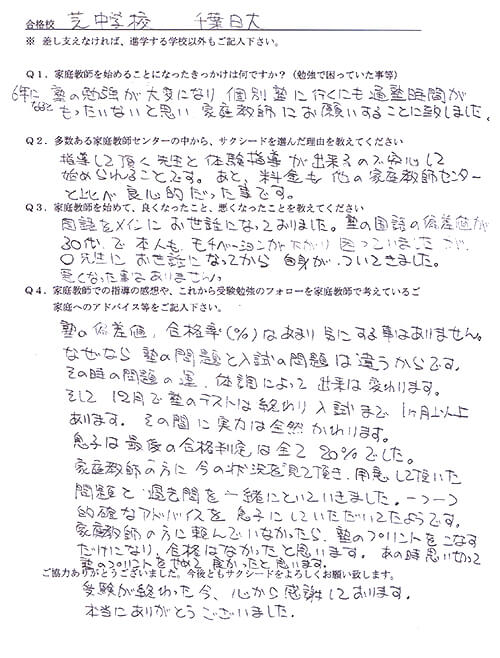 合格校 芝中学校 千葉日大
※ 差し支えなければ、進学する学校以外もご記入下さい。
Q1．家庭教師を始めることになったきっかけは何ですか？（勉強で困っていた事等）
6年になると 塾の勉強が大変になり 個別塾に行くにも通塾時間が
もったいないと思い 家庭教師にお願いすることに致しました。
Q2．多数ある家庭教師センターの中から、サクシードを選んだ理由を教えてください
指導して頂く先生と体験指導が出来るので安心して
始められることです。あと、料金も他の家庭教師センター
と比べ良心的だった事です。
Q3．家庭教師を始めて、良くなったこと、悪くなったことを教えてください
国語をメインにお世話になっておりました。塾の国語の偏差値が
30代で本人も、モチベーションが下がり困っていましたが、
○先生にお世話になってから自身がついてきました。
悪くなった事はありません。
Q4．家庭教師での指導の感想や、これから受験勉強のフォローを家庭教師で考えているご
家庭へのアドバイス等をご記入下さい。
塾の偏差値，合格率（%）はあまり気にする事はありません。
なぜなら塾の問題と入試の問題は違うからです。
その時の問題の運、体調によって出来は変わります。
そして12月で塾のテストは終わり入試まで1ヶ月以上
あります。その間に実力は全然かわります。
息子は最後の合格判定は全て20％でした。
家庭教師の方に今の状況を見て頂き、用意して頂いた
問題と過去問を一緒にといていきました。一つ一つ
的確なアドバイスを息子にしていただいてたようです。
家庭教師の方に頼んでいなかったら、塾のプリントをこなす
だけになり、合格はなかったと思います。あの時思い切って
塾のプリントをやめて良かったと思います。
ご協力ありがとうございました。今後ともサクシードをよろしくお願い致します。
受験が終わった今、心から感謝しております。
本当にありがとうございました．